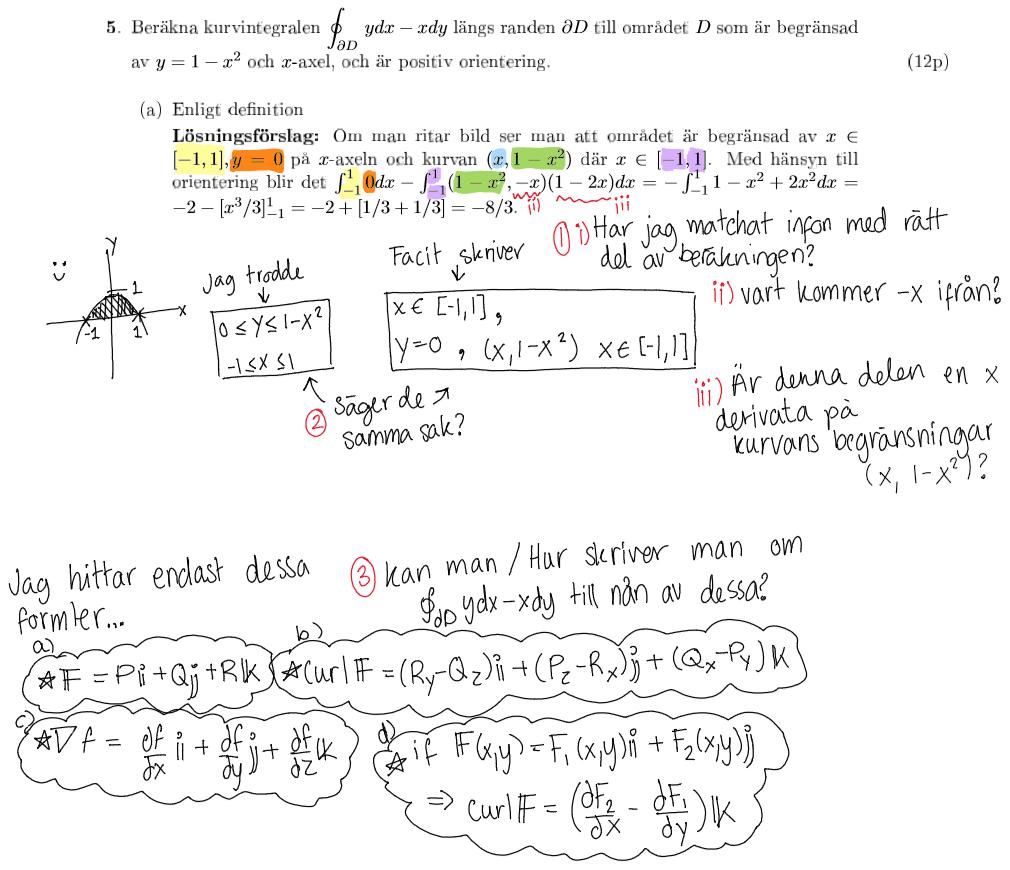 5. Beräkna kurvintegralen ∮_∂D ydx − xdy längs randen ∂D till området D som är begränsad
av y = 1 − x² och x-axel, och är positiv orientering. (12p)
(a) Enligt definition
Lösningsförslag: Om man ritar bild ser man att området är begränsad av x ∈
[−1, 1], y = 0 på x-axeln och kurvan (x, 1 − x²) där x ∈ [−1, 1]. Med hänsyn till
orientering blir det ∫_{−1}^{1} 0dx − ∫_{−1}^{1} (1 − x², −x)(1 − 2x)dx = − ∫_{−1}^{1} 1 − x² + 2x²dx =
−2 − [x³/3]_{−1}^{1} = −2 + [1/3 + 1/3] = −8/3.
ii) iii
① i) Har jag matchat infon med rätt
del av beräkningen?
ii) vart kommer -x ifrån?
iii) Är denna delen en x
derivata på
kurvans begränsningar
(x, 1-x²)?
y
1
x
-1
1
Jag trodde
0 ≤ y ≤ 1-x²
-1 ≤ x ≤ 1
Facit skriver
x ∈ [-1,1] ,
y=0 , (x,1-x²) x ∈ [-1,1]
② Säger de
samma sak?
Jag hittar endast dessa
formler...
③ kan man / Hur skriver man om
∮_∂D ydx-xdy till nån av dessa?
a)
☆ F = Pi + Qj + Rk
b)
☆ Curl F = (Ry-Qz)i + (Pz-Rx)j + (Qx-Py)k
c)
☆ ∇f = df/dx i + df/dy j + df/dz k
d)
☆ if F(x,y) = F₁(x,y)i + F₂(x,y)j
⇒ curl F = (∂F₂/∂x - ∂F₁/∂y)k